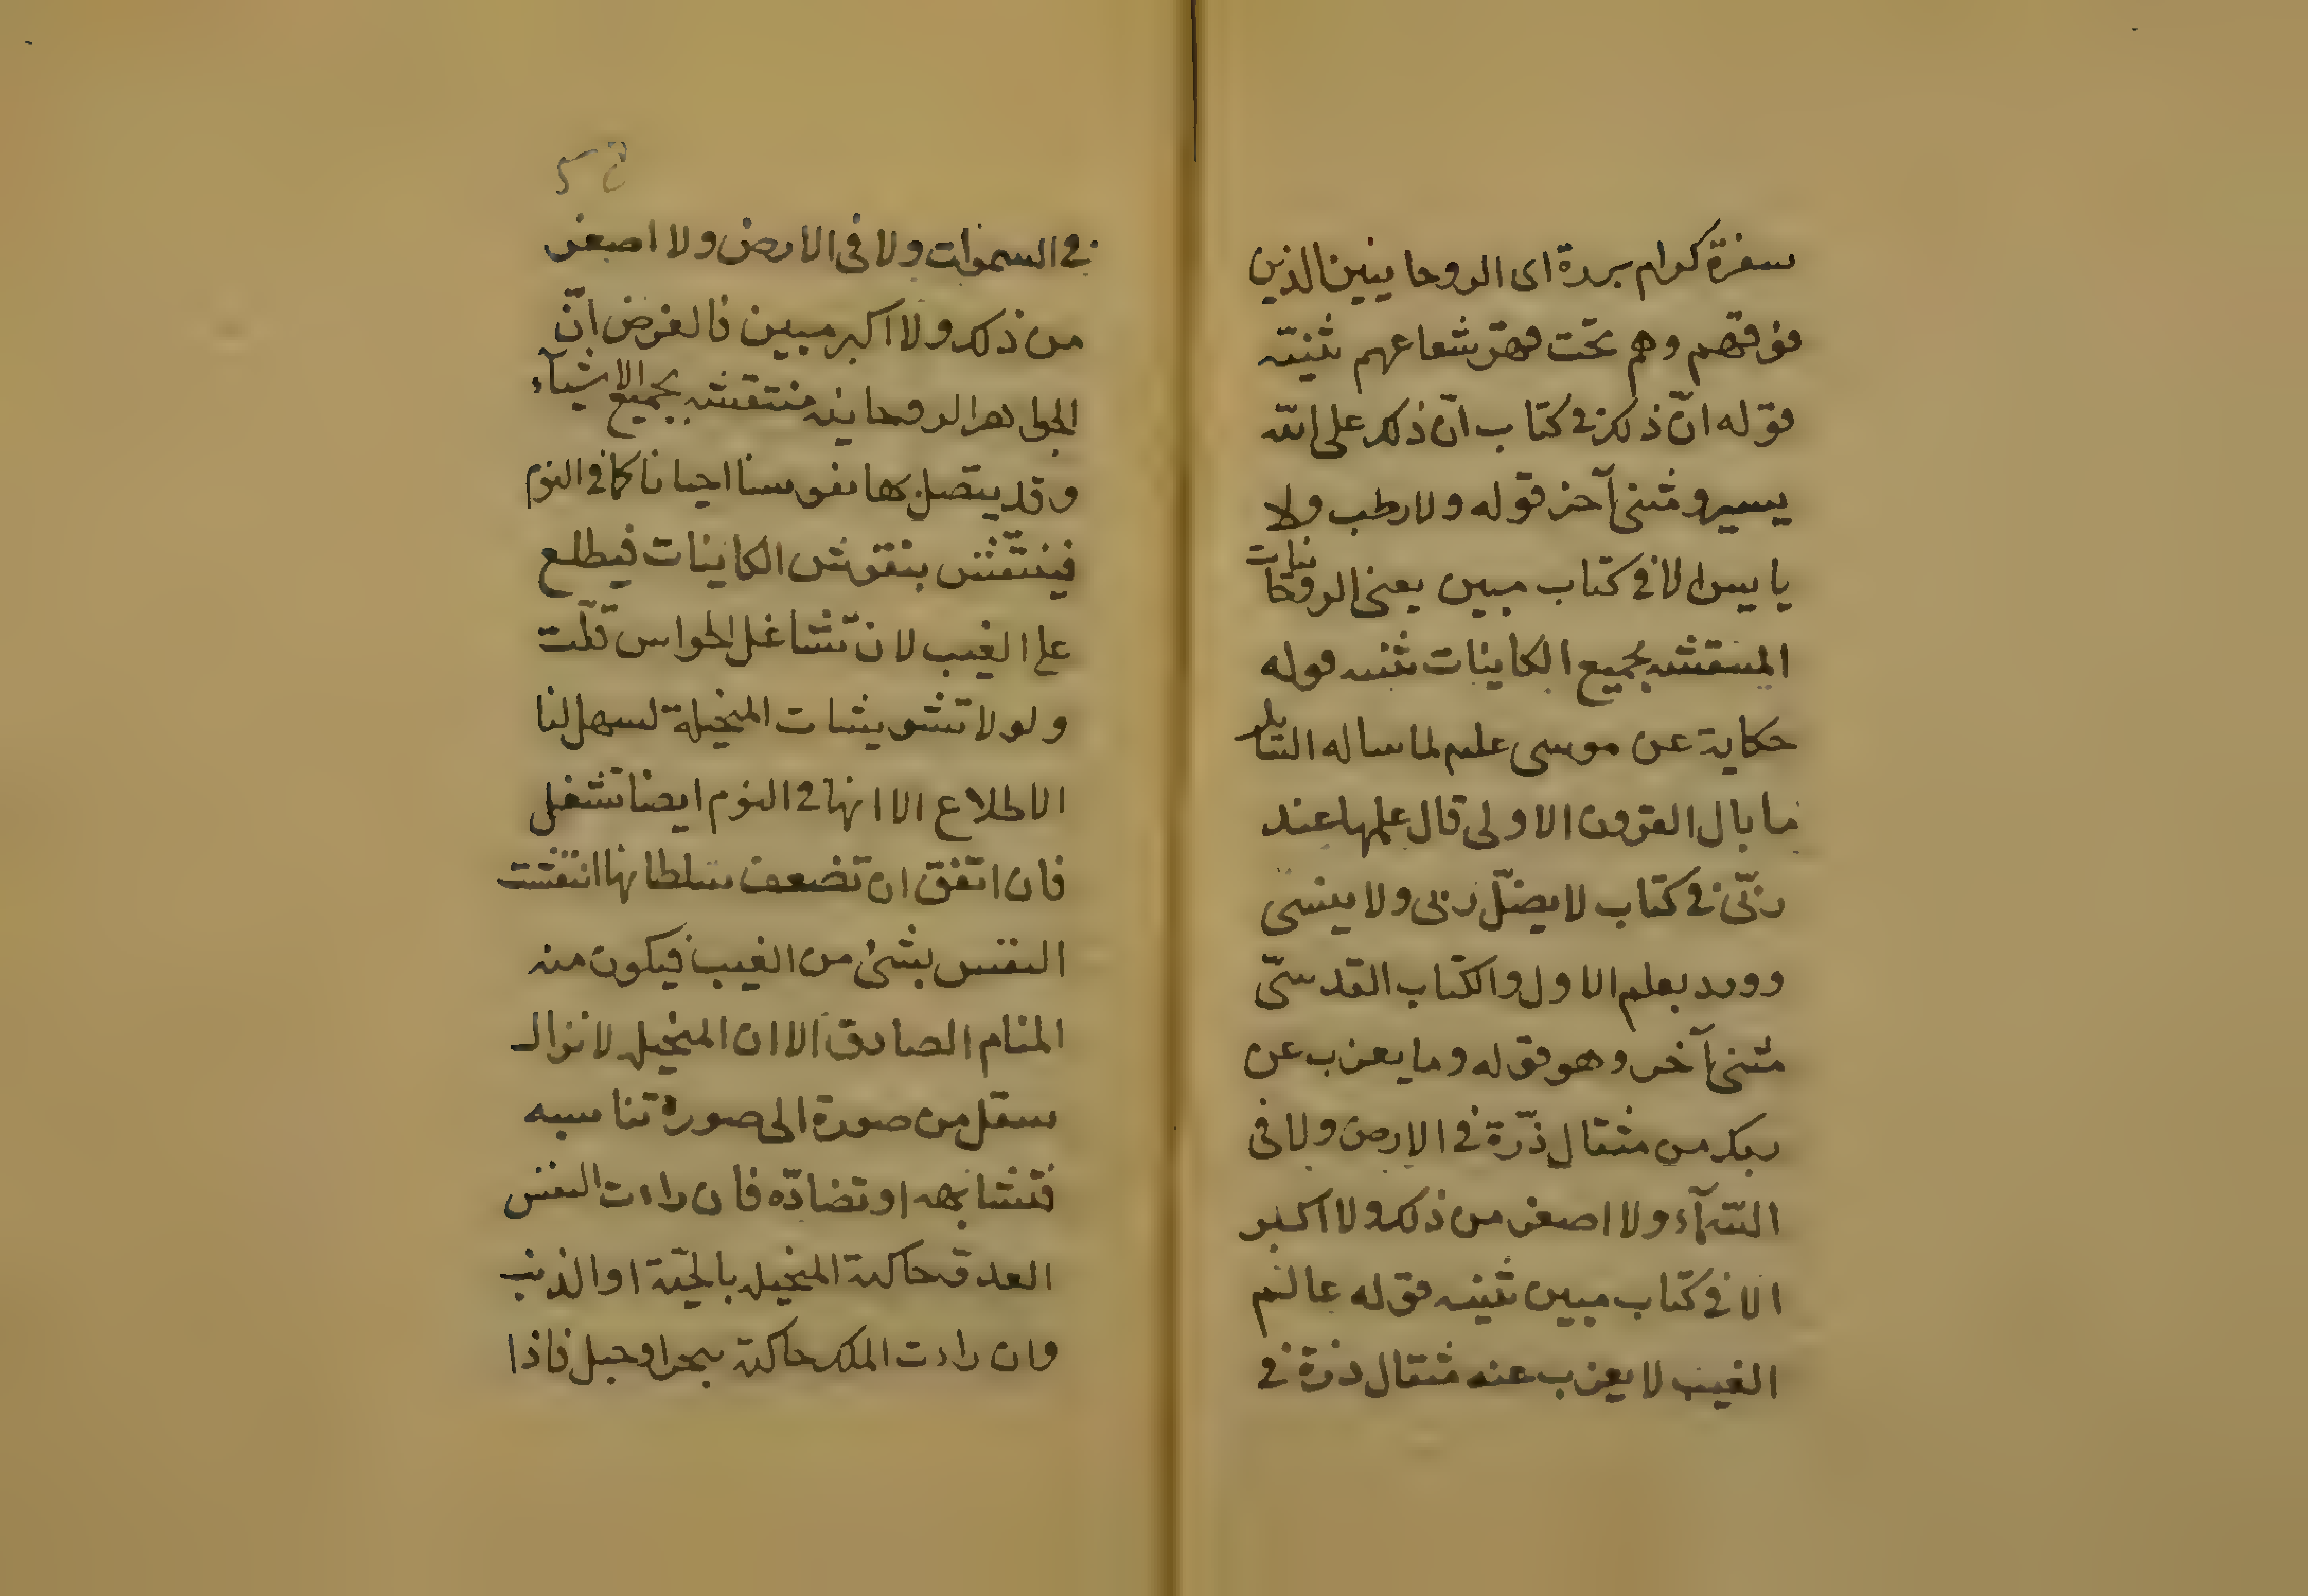 سفرة كرام بررة اى الروحانيين الذين
فوقهم وهم تحت قهر شعاعهم تثنية
قوله انّ ذلك فى كتاب انّ ذلك على الله
يسير ومثنى آخر قوله ولا رطب ولا
يابس الا فى كتاب مبين يعنى الروحانيات
المنتقشه بجميع الكاينات تثنيه قوله
حكاية عن موسى علم لما ساله السايل
ما بال القرون الاولى قال علمها عند
ربّى فى كتاب لا يضلّ ربى ولا ينسى
وورد بعلم الاول والكتاب القدسىّ
مثنى آخر وهو قوله وما يعزب عن
ربك من مثقال ذرّة فى الارض ولا فى
السّمآء ولا اصغر من ذلك ولا اكبر
الا فى كتاب مبين تثنيه قوله عالم
الغيب لا يعزب عنه مثقال ذرة فى
فى السموات ولا فى الارض ولا اصغر
من ذلك ولا اكبر مبين فالغرض انّ
الجواهر الروحانيه منتقشه بجميع الاشيآء
وقد يتصل بها نفوسنا احيانا كما فى النوم
فينتقش بنقوش الكاينات فيطلع
على الغيب لان تشاغل الحواس قلّت
ولولا تشويشات المتخيلة لسهل لنا
الاطلاع الا انها فى النوم ايضا تشغل
فان اتفق ان تضعف سلطانها انتقشت
النفس بشئ من الغيب فيكون منه
المنام الصادق الا ان المتخيله لا تزال
ينتقل من صورة الى صورة تناسبه
فتشابهه او تضادّه فان راءت النفس
العدو حاكته المتخيله بالحيّة او الذئب
وان راءت الملك حاكته ببحر او جبل فاذا